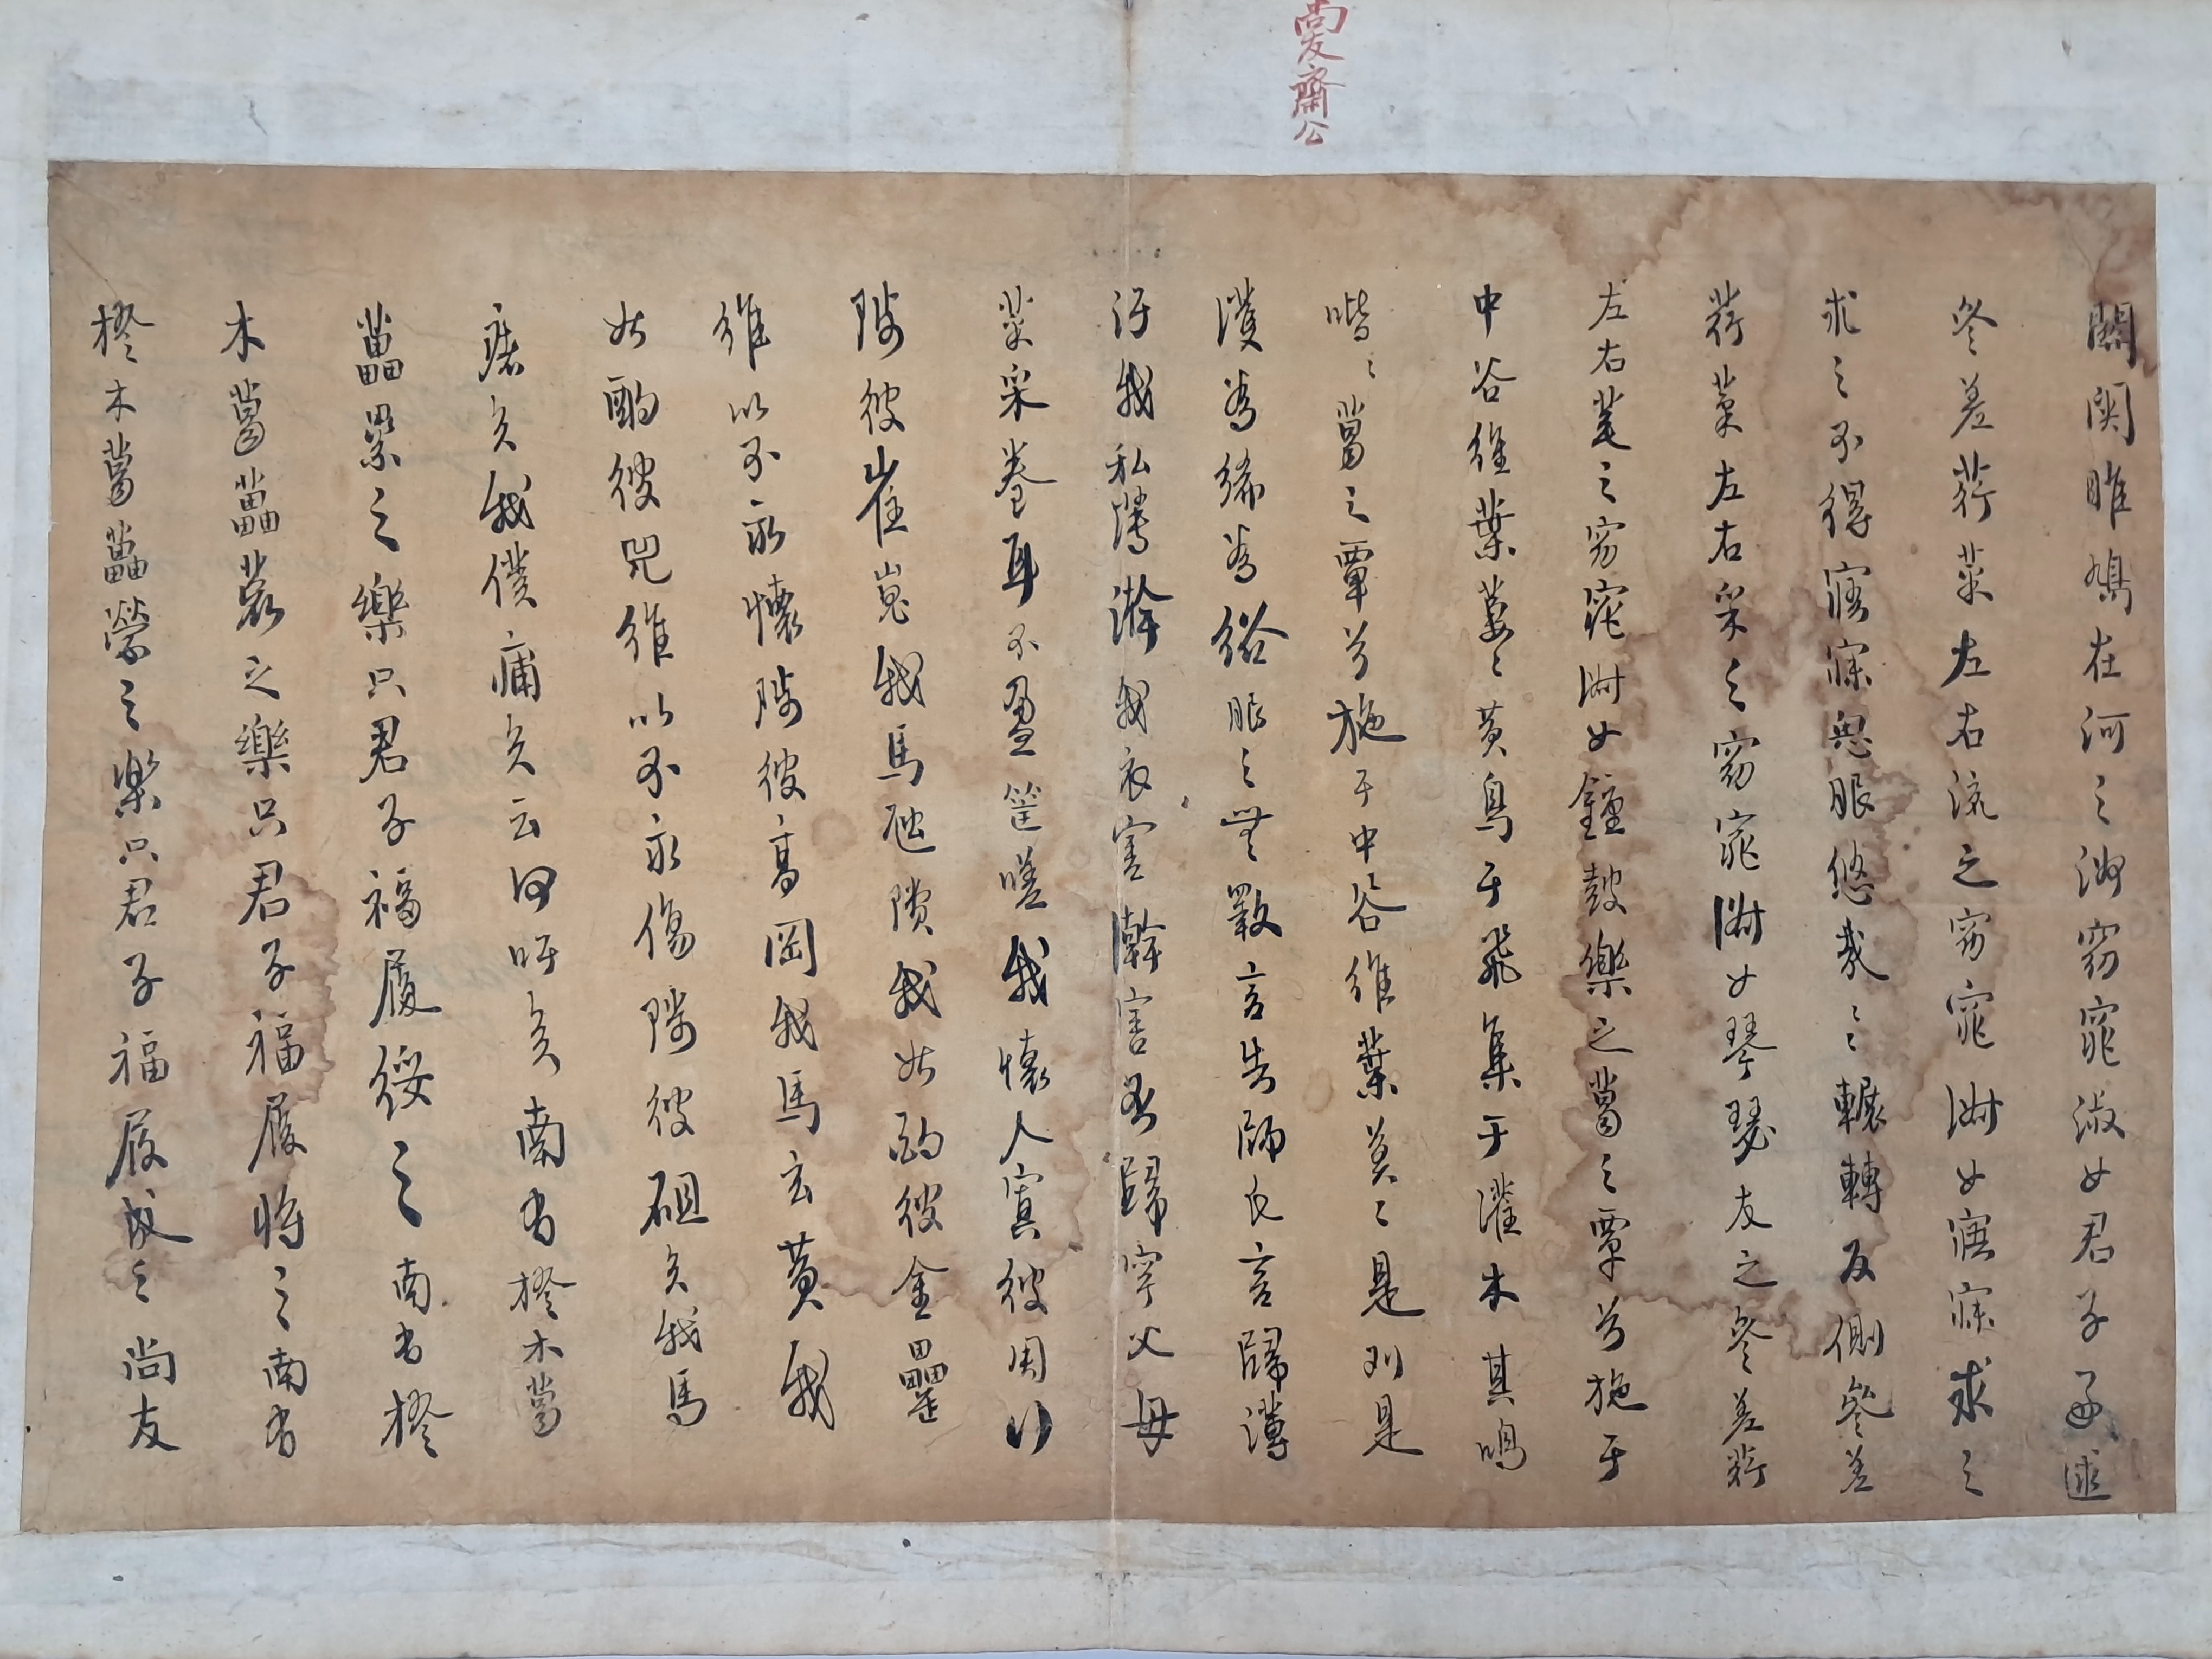 尚友齋公
關関雎鳩在河之洲窈窕淑女君子好逑
參差荇菜左右流之窈窕淑女寤寐求之
求之不得寤寐思服悠哉〻〻輾轉反側參差
荇菜左右采之窈窕淑女琴瑟友之參差荇
左右芼之窈窕淑女鐘鼓樂之葛之覃兮施于
中谷維葉萋〻黃鳥于飛集于灌木其鳴
喈〻葛之覃兮施于中谷維葉莫〻是刈是
濩為絺為綌服之無斁言告師氏言歸薄
汙我私薄澣我衣害澣害否歸寧父母
菜采卷耳不盈筐嗟我懷人寘彼周行
陟彼崔嵬我馬虺隤我姑酌彼金罍
維以不永懷陟彼高岡我馬玄黃我
姑酌彼兕維以不永傷陟彼砠矣我馬
瘏矣我僕痡矣云何吁矣南有樛木葛
藟纍之樂只君子福履綏之南有樛
木葛藟荒之樂只君子福履將之南有
樛木葛藟縈之樂只君子福履成之尚友